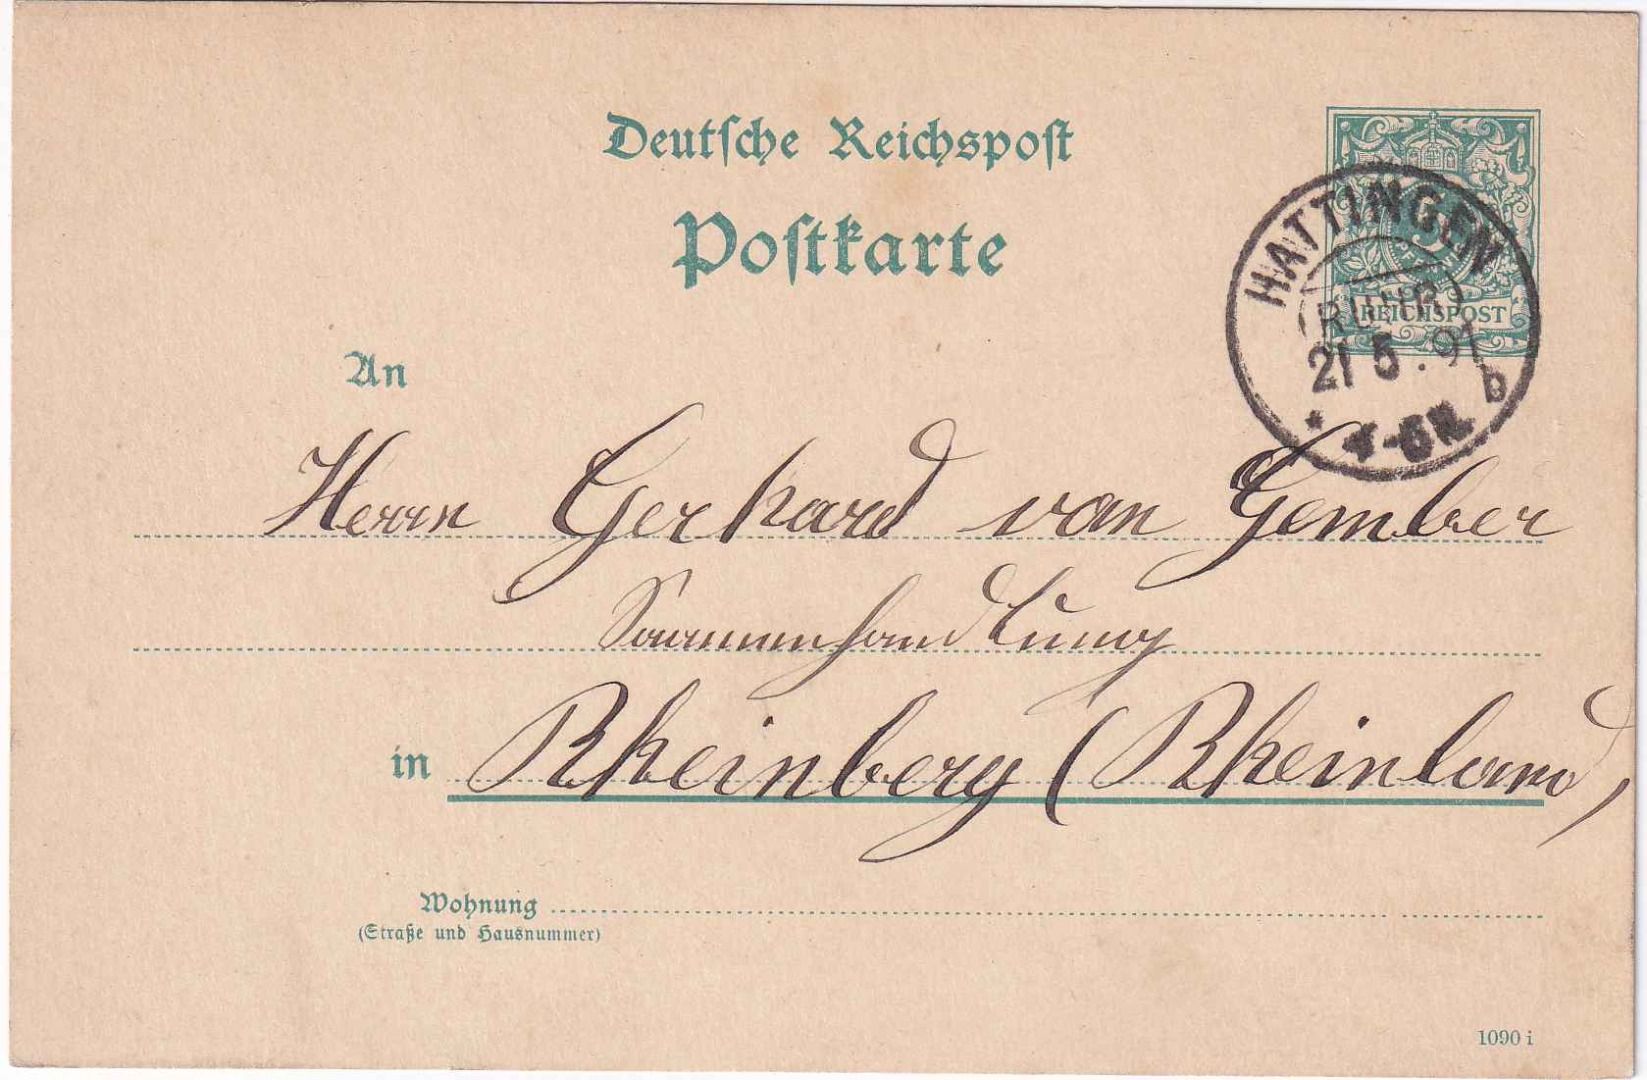 Deutsche Reichspost
Postkarte
HATTINGEN
(RUHR)
21 5.91
* 4-5N. b
REICHSPOST
An
Herrn Gerhard van Gember
Saamenhandlung
in Rheinberg (Rheinland)
Wohnung
(Straße und Hausnummer)
1090 i